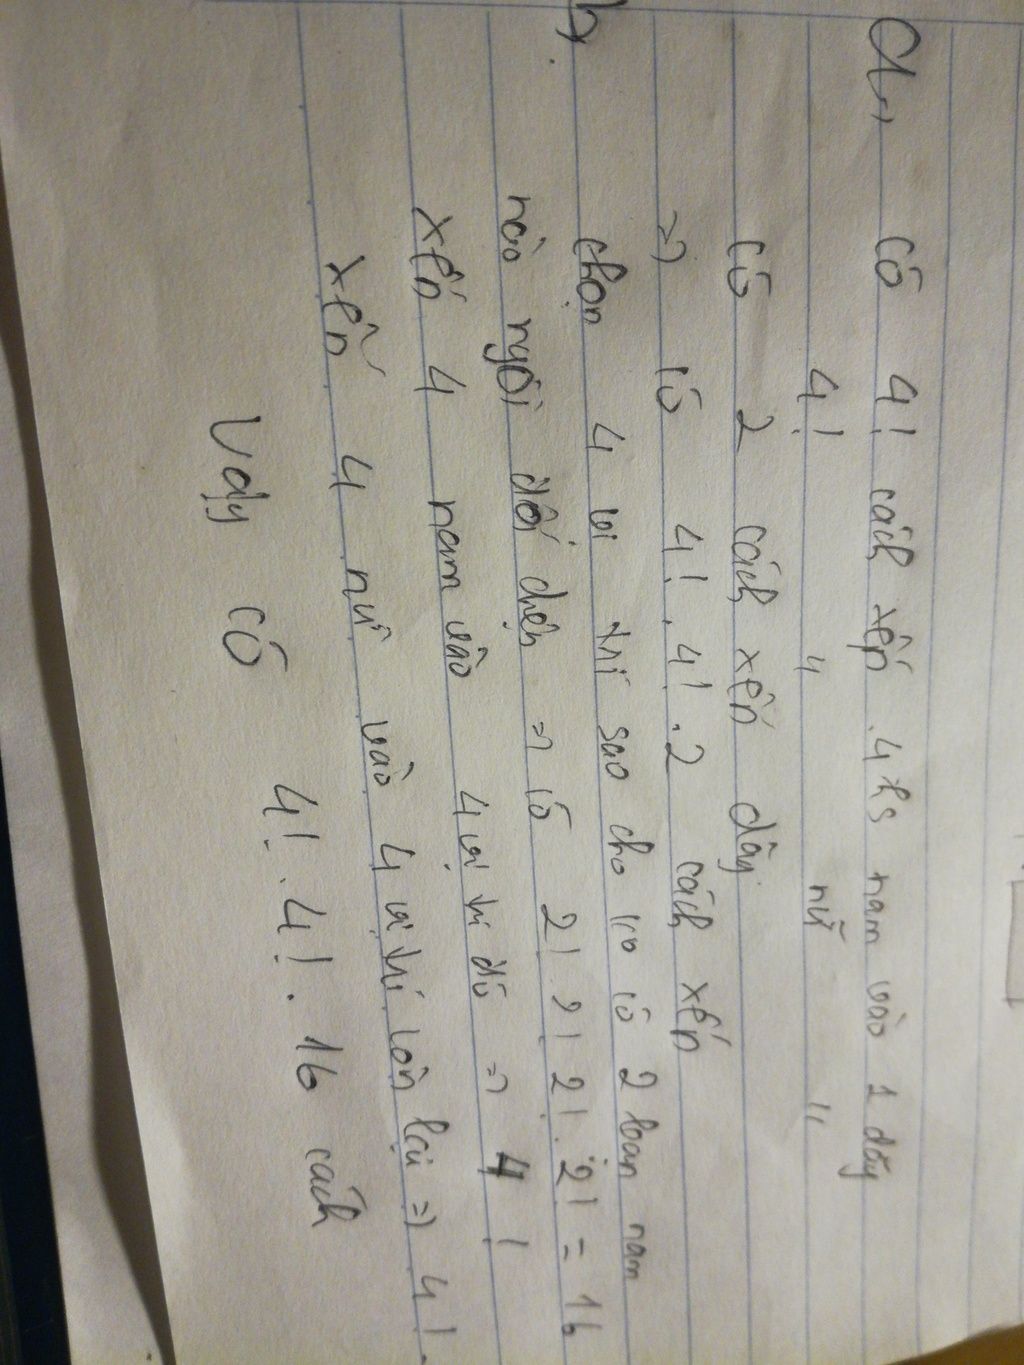 a, có 4! cách xếp 4 hs nam vào 1 dãy
4! " nữ "
có 2 cách xếp dãy
=> có 4! . 4! . 2 cách xếp
b, chọn 4 vị trí sao cho ko có 2 bạn nam
nào ngồi đối diện => có 2! . 2! 2! . 2! = 16
xếp 4 nam vào 4 vị trí đó => 4!
xếp 4 nữ vào 4 vị trí còn lại => 4!
Vậy có 4! . 4! . 16 cách